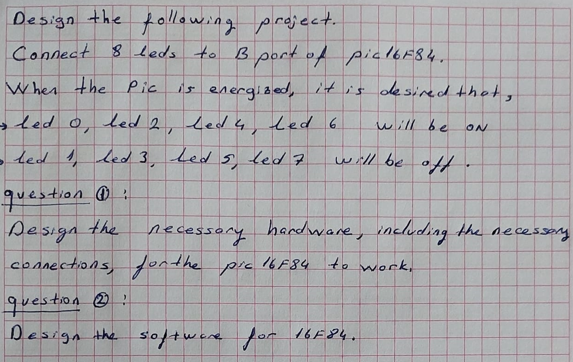 Design the following project.
Connect 8 leds to B port of pic16F84.
When the Pic is energized, it is desired that,
→ led 0, led 2, led 4, led 6 will be ON
led 1, led 3, led 5, led 7 will be off.
question ① :
Design the necessary hardware, including the necessary
connections, for the pic 16F84 to work.
question ② :
Design the software for 16F84.